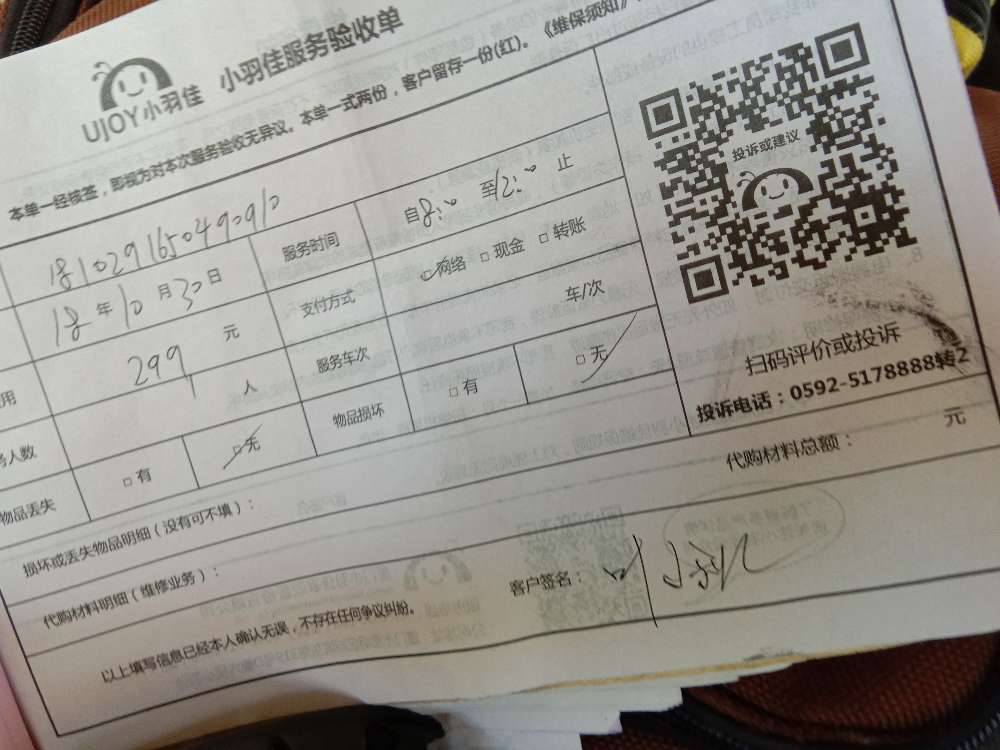 UJOY小羽佳 小羽佳服务验收单
本单一经接签，即视为对本次服务验收无异议。本单一式两份，客户留存一份(红)。《维保须知》
181029165049090910
18年10月30日 服务时间 自8:00至12:00止
用 299 元 支付方式 □网络 □现金 □转账
务人数 1 人 服务车次 车/次
物品丢失 □有 □无 物品损坏 □有 □无
损坏或丢失物品明细（没有可不填）：
代购材料明细（维修业务）： 代购材料总额： 元
以上填写信息已经本人确认无误，不存在任何争议纠纷。 客户签名：
投诉或建议
扫码评价或投诉
投诉电话：0592-5178888转2